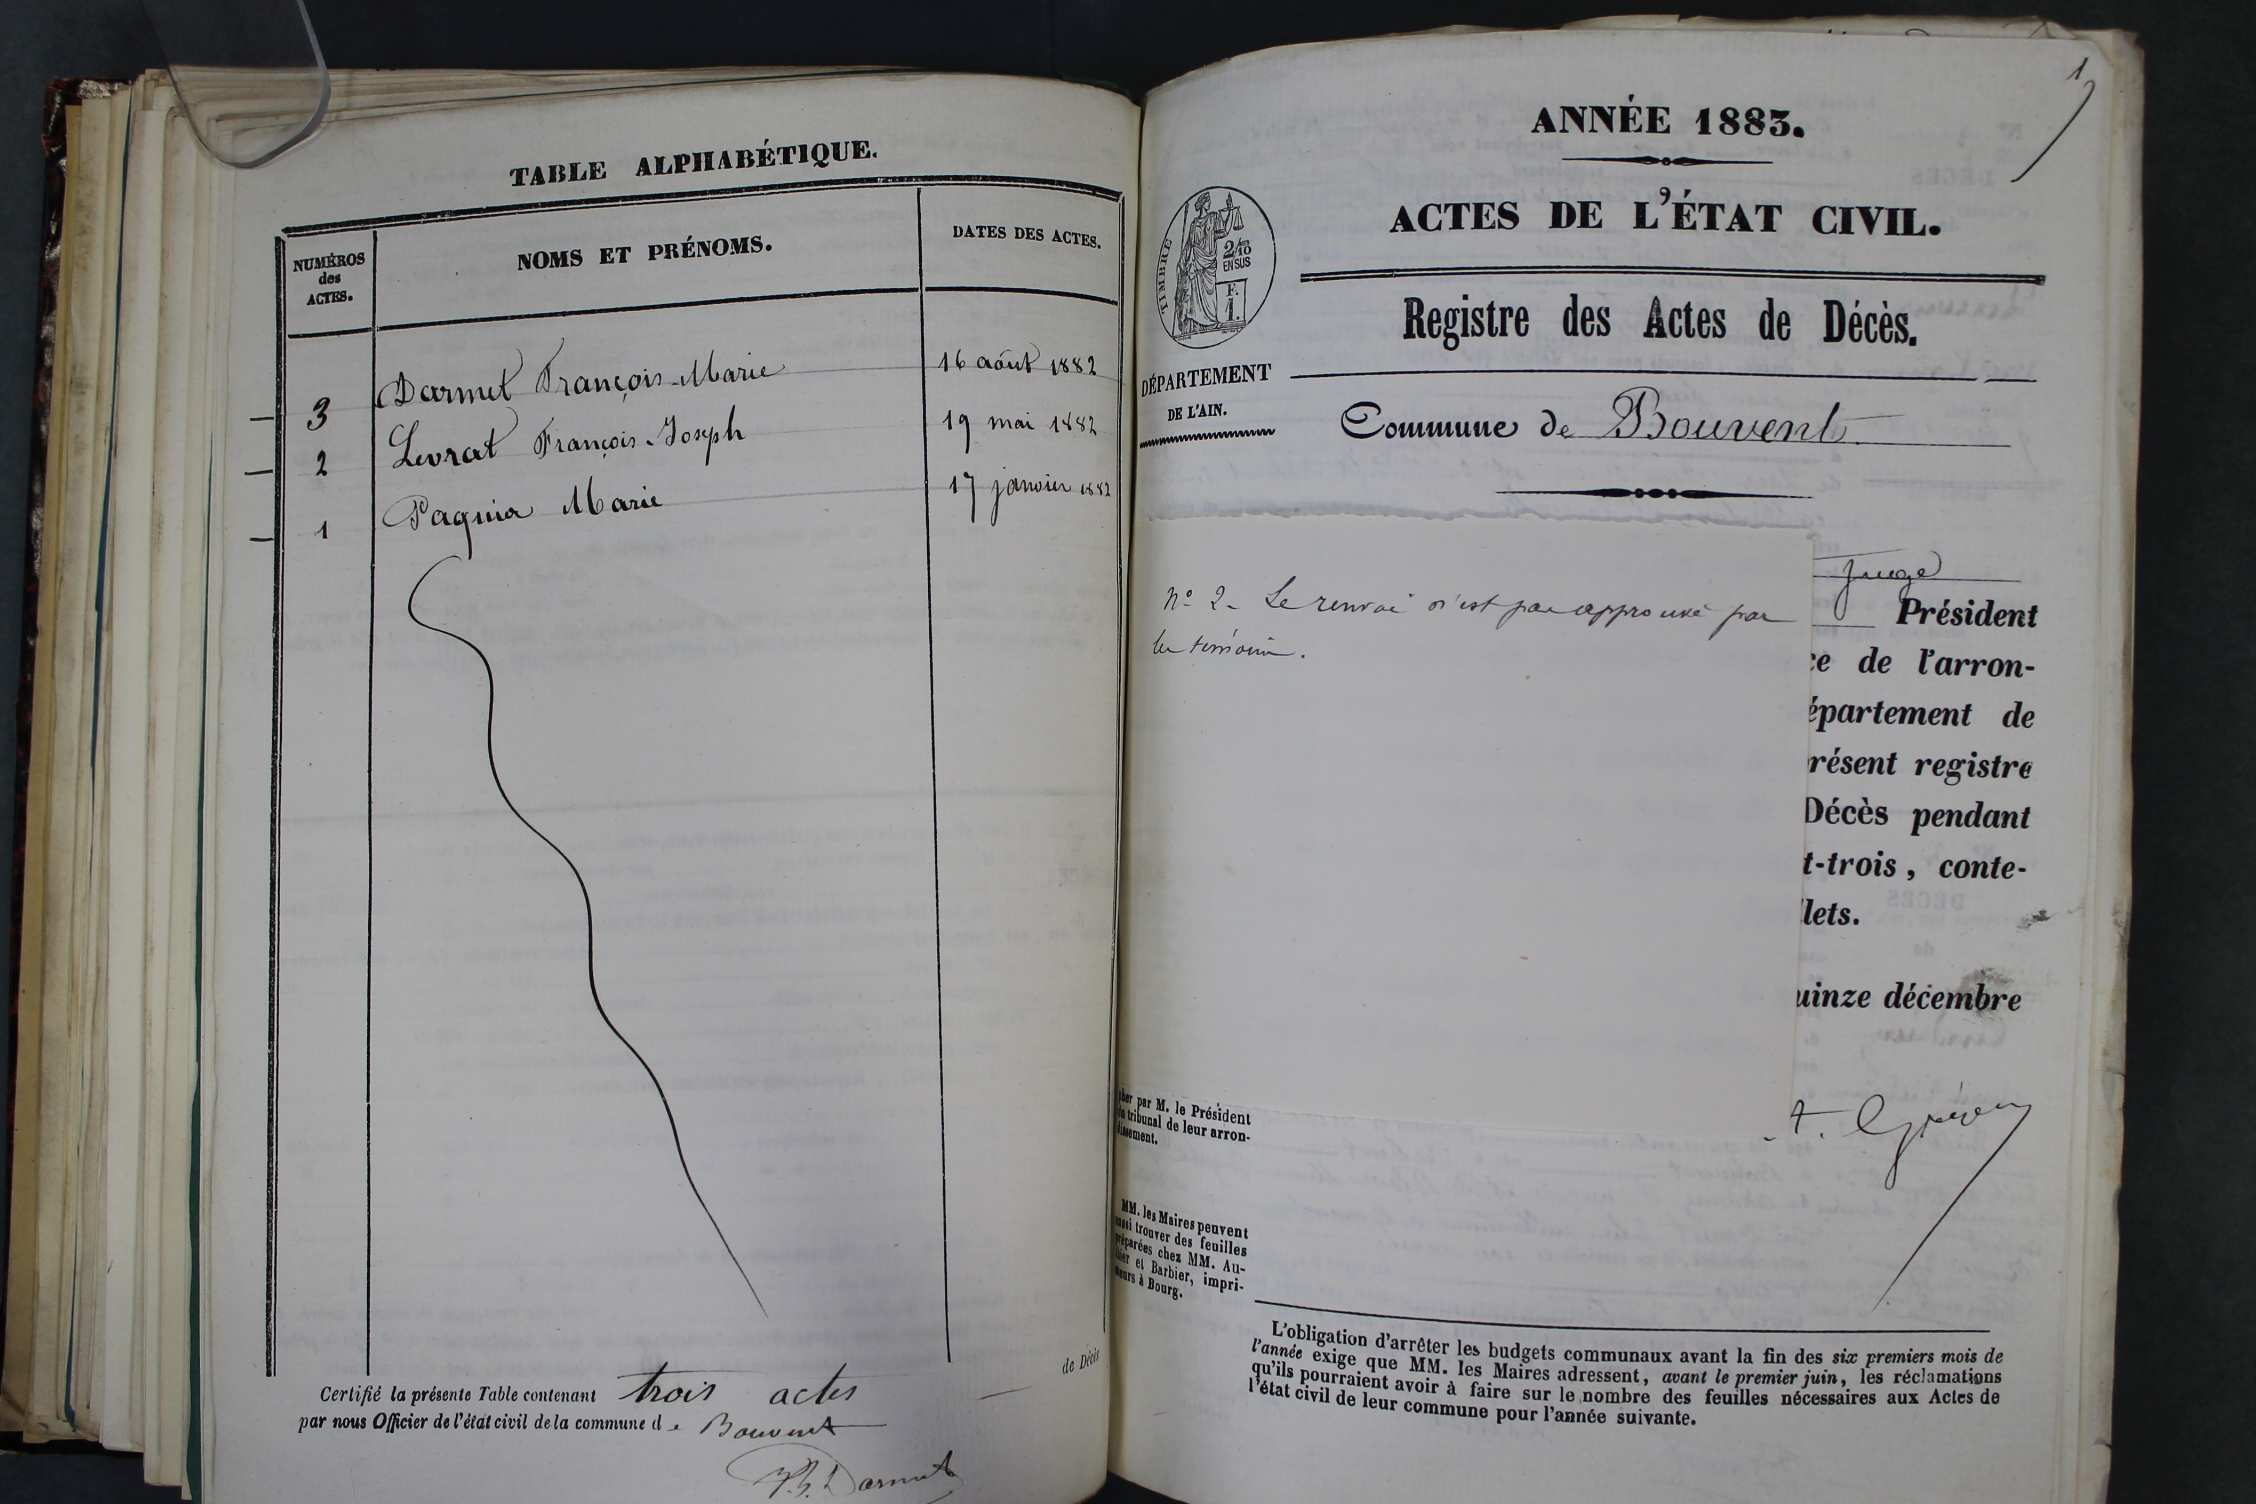 TABLE ALPHABÉTIQUE.
NUMÉROS
des
ACTES.
NOMS ET PRÉNOMS.
DATES DES ACTES.
3 Darmet François-Marie 16 août 1882
2 Levrat François-Joseph 19 mai 1882
1 Marie 17 janvier 1882
de Décès
Certifié la présente Table contenant trois actes
par nous Officier de l'état civil de la commune de Bouvent
Darmet
1
ANNÉE 1883.
ACTES DE L'ÉTAT CIVIL.
TIMBRE
2/10
EN SUS
F.
1.
Registre des Actes de Décès.
DÉPARTEMENT
DE L'AIN.
Commune de Bouvent
Juge
Président
ce de l'arron-
épartement de
résent registre
Décès pendant
t-trois, conte-
lets.
uinze décembre
N° 2 - Le renvoi n'est pas approuvé par
les témoins.
pher par M. le Président
du tribunal de leur arron-
dissement.
MM. les Maires peuvent
aussi trouver des feuilles
préparées chez MM. Au-
thier et Barbier, impri-
meurs à Bourg.
L'obligation d'arrêter les budgets communaux avant la fin des six premiers mois de
l'année exige que MM. les Maires adressent, avant le premier juin, les réclamations
qu'ils pourraient avoir à faire sur le nombre des feuilles nécessaires aux Actes de
l'état civil de leur commune pour l'année suivante.